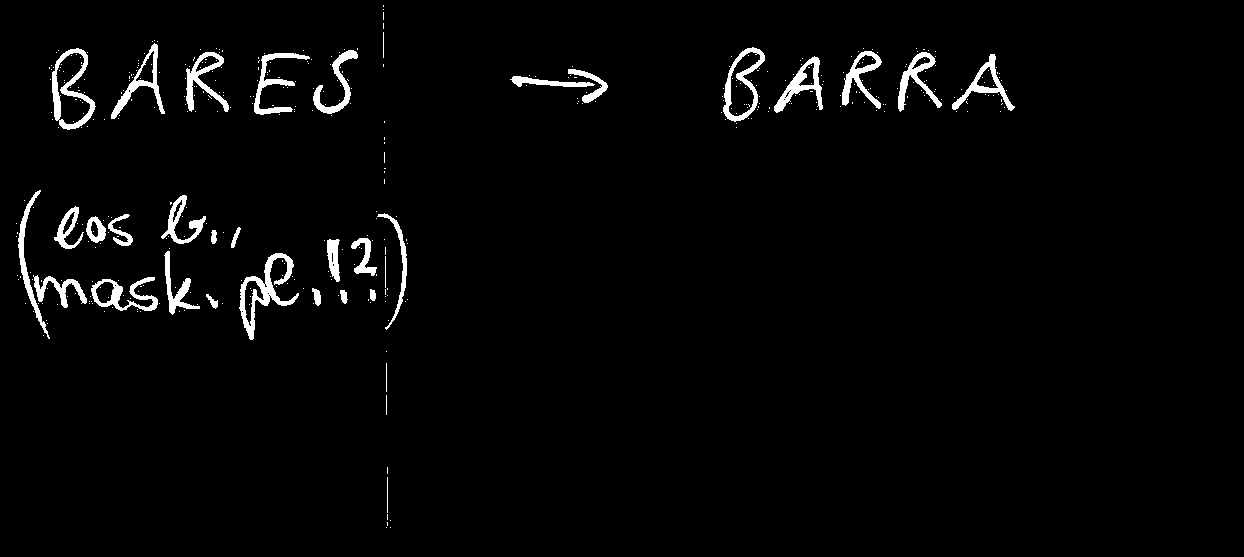 BARES → BARRA
(los b.,
mask. pl.!!?)